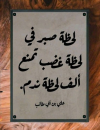 لحظة صبر في
لحظة غضب تمنع
ألف لحظة ندم.
علي بن أبي طالب